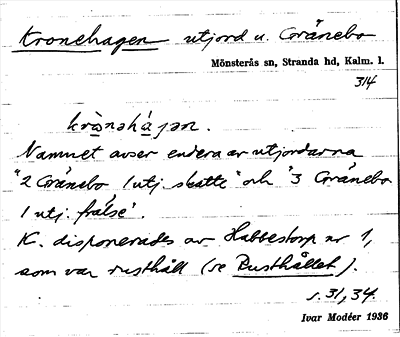 Kronehagen utjord u. Gränebo
Mönsterås sn, Stranda hd, Kalm. l.
314
krònəháγən.
Namnet avser endera av utjordarna
"2 Gränebo 1 utj. skatte" och "3 Gränebo
1 utj. frälse".
K. disponerades av Habbestorp nr 1,
som var rusthåll (se Rusthållet).
s. 31, 34.
Ivar Modéer 1936